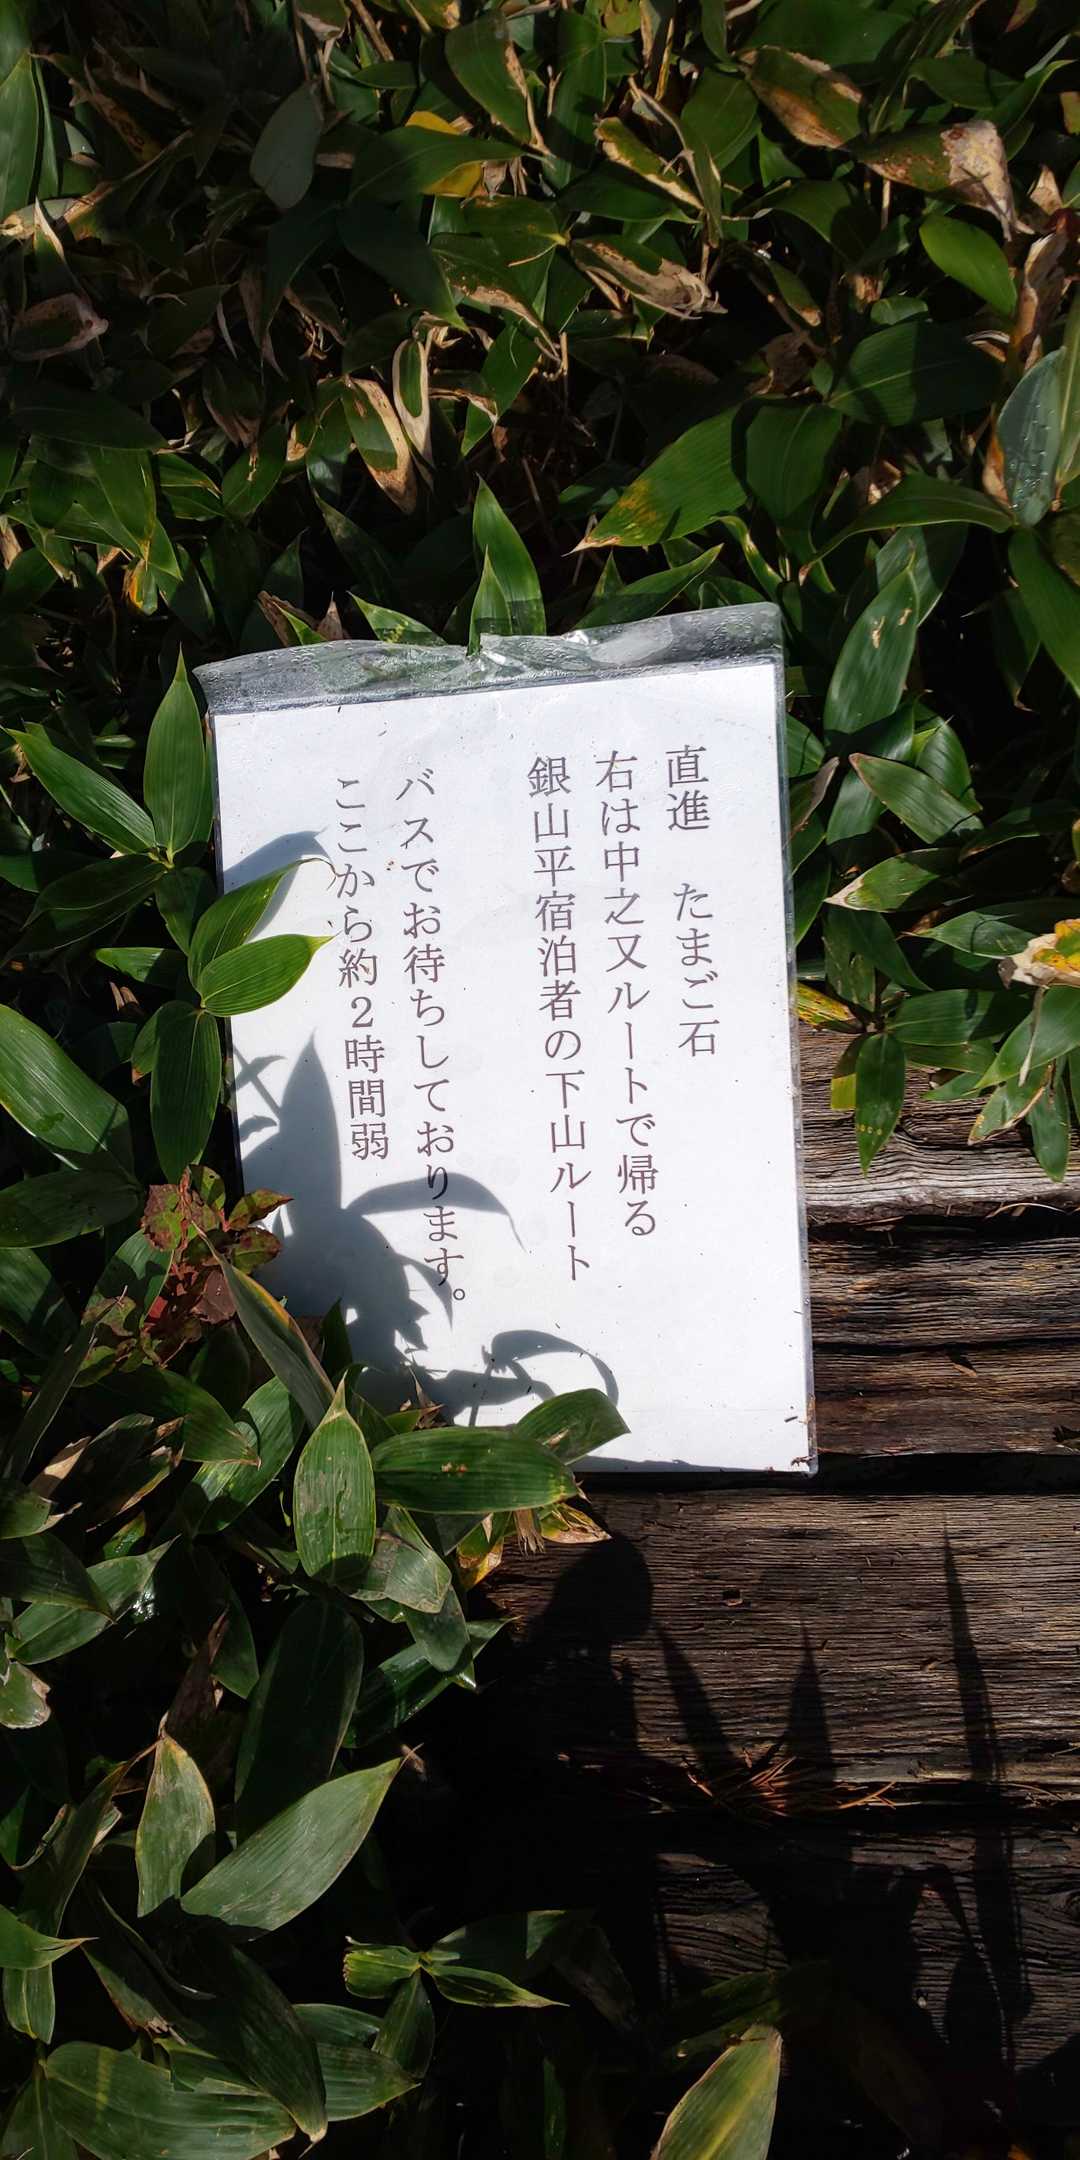 直進　たまご石
右は中之又ルートで帰る
銀山平宿泊者の下山ルート
バスでお待ちしております。
ここから約2時間弱